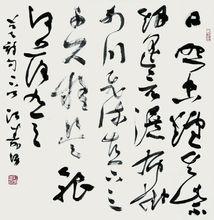 日照香炉生紫
烟遥看瀑布挂
前川飞流直下三
千尺疑是银
河落九天